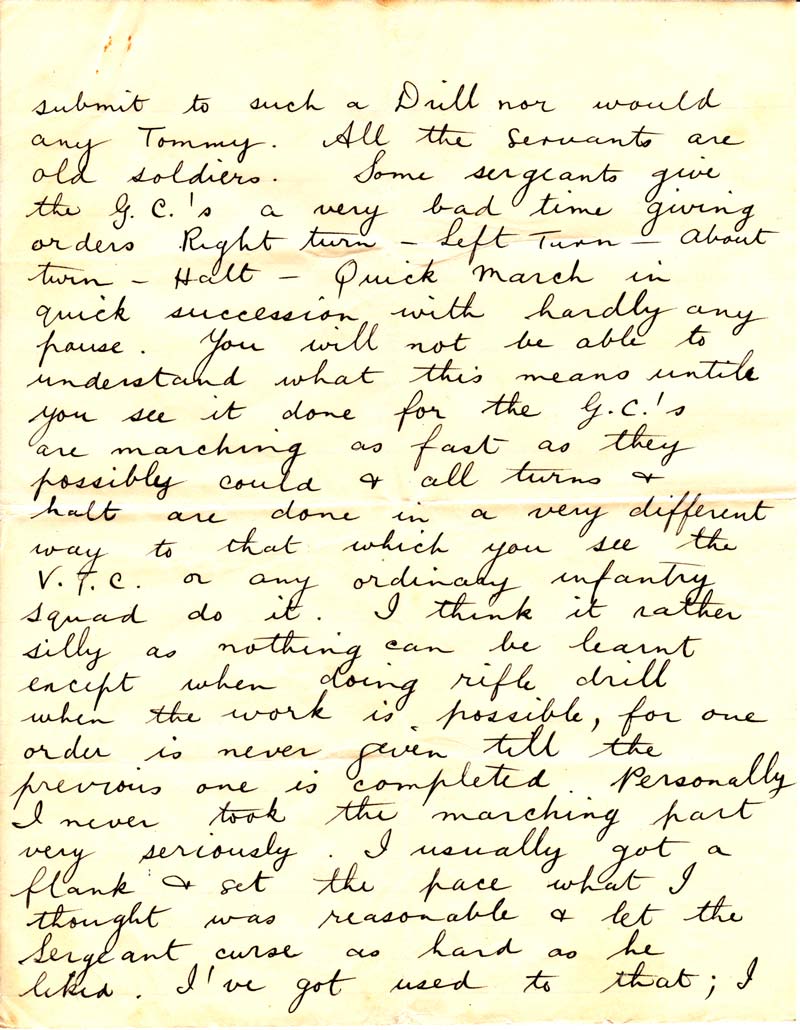 submit to such a Drill nor would
any Tommy. All the servants are
old soldiers. Some sergeants give
the G.C.'s a very bad time giving
orders Right turn – Left Turn – About
turn – Halt – Quick March in
quick succession with hardly any
pause. You will not be able to
understand what this means until
you see it done for the G.C.'s
are marching as fast as they
possibly could & all turns &
halt are done in a very different
way to that which you see the
V.T.C. or any ordinary infantry
squad do it. I think it rather
silly as nothing can be learnt
except when doing rifle drill
when the work is possible, for one
order is never given till the
previous one is completed. Personally
I never took the marching part
very seriously. I usually got a
flank & set the pace what I
thought was reasonable & let the
Sergeant curse as hard as he
liked. I've got used to that; I